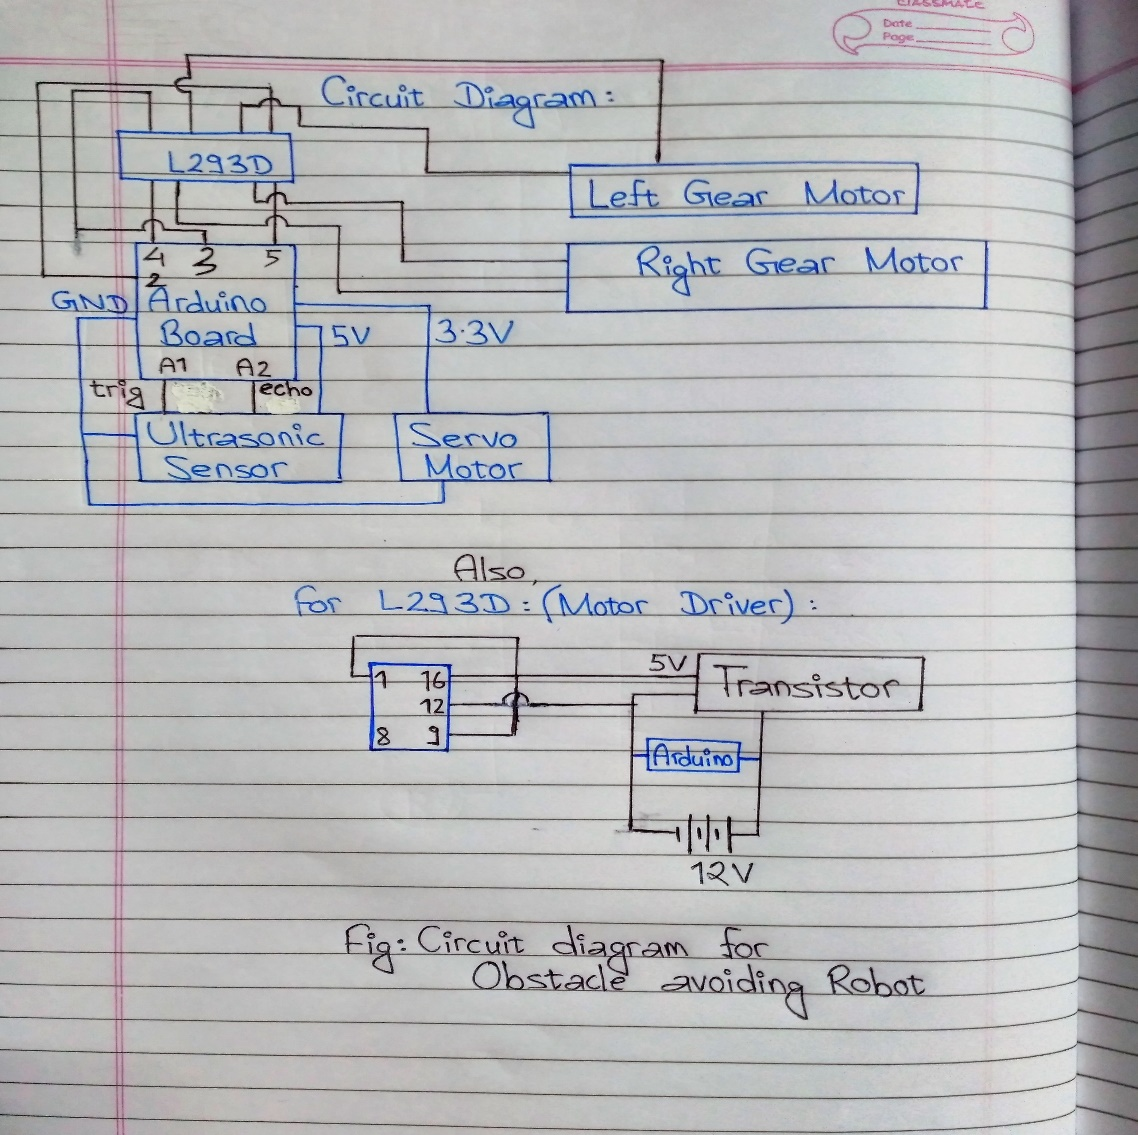 CLASSMATE
Date
Page
Circuit Diagram:
L293D
Left Gear Motor
Right Gear Motor
4 3 5
2
GND Arduino
Board 5V 3.3V
A1 A2
trig echo
Ultrasonic Servo
Sensor Motor
Also,
for L293D: (Motor Driver):
5V
1 16 Transistor
12
8 9
Arduino
12V
Fig: Circuit diagram for
Obstacle avoiding Robot